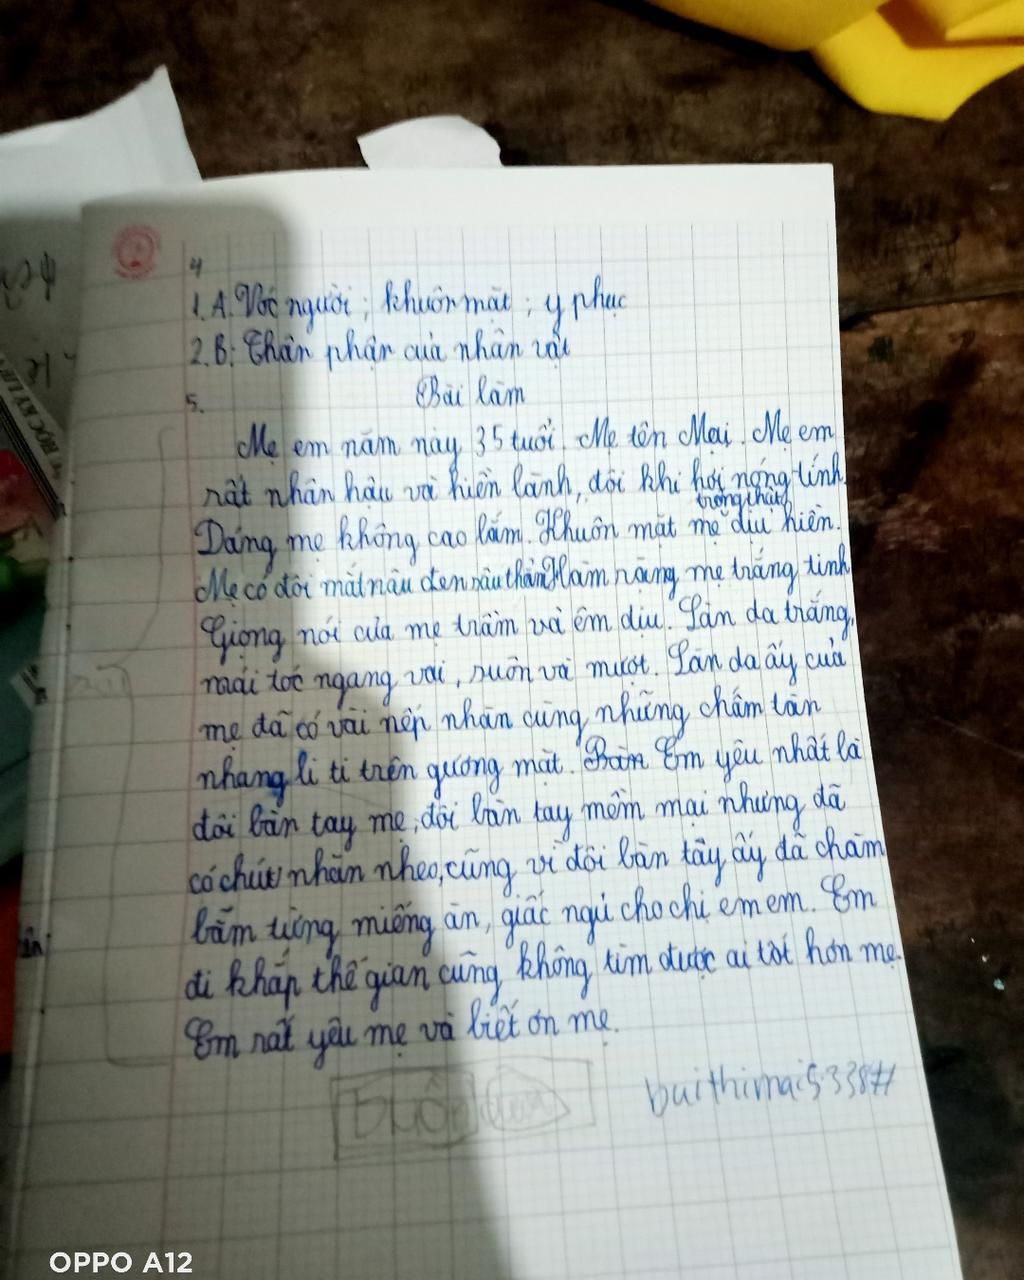 4
1. A. Vóc người ; khuôn mặt ; y phục
2. B: Thân phận của nhân vật
5. Bài làm
Mẹ em năm nay 35 tuổi. Mẹ tên Mai. Mẹ em
rất nhân hậu và hiền lành, đôi khi hơi nóng tính.
trông thật
Dáng mẹ không cao lắm. Khuôn mặt mẹ dịu hiền.
Mẹ có đôi mắt nâu đen sâu thẳm. Hàm răng mẹ trắng tinh
Giọng nói của mẹ trầm và êm dịu. Làn da trắng,
mái tóc ngang vai, suôn và mượt. Làn da ấy của
mẹ đã có vài nếp nhăn cùng những chấm tàn
nhang li ti trên gương mặt. Bàn Em yêu nhất là
đôi bàn tay mẹ, đôi bàn tay mềm mại nhưng đã
có chút nhăn nheo, cũng vì đôi bàn tay ấy đã chăm
bẵm từng miếng ăn, giấc ngủ cho chị em em. Em
đi khắp thế gian cũng không tìm được ai tốt hơn mẹ.
Em rất yêu mẹ và biết ơn mẹ.
buithimai5338#
OPPO A12